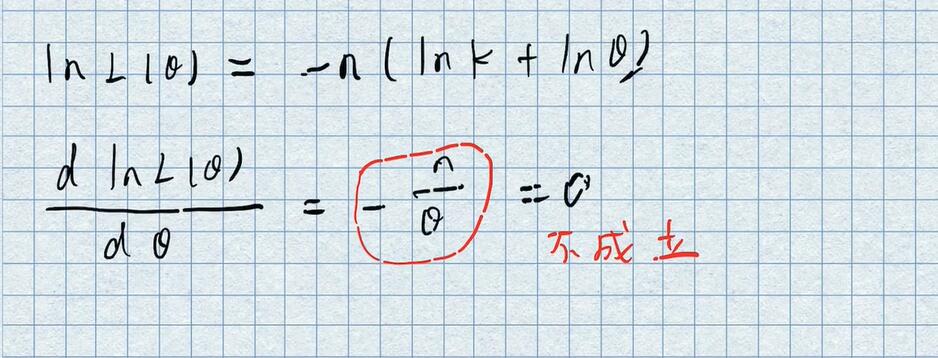 ln L(θ) = -n ( ln k + ln θ )
d ln L(θ) / d θ = - n / θ = 0
不成立